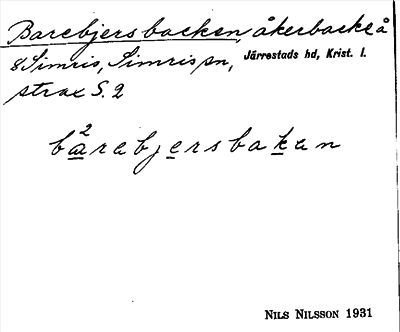 Barebjersbacken, åkerbacke å
8 Simris, Simris sn, Järrestads hd, Krist. l.
strax S. 2
ba²rebjersbaken
NILS NILSSON 1931